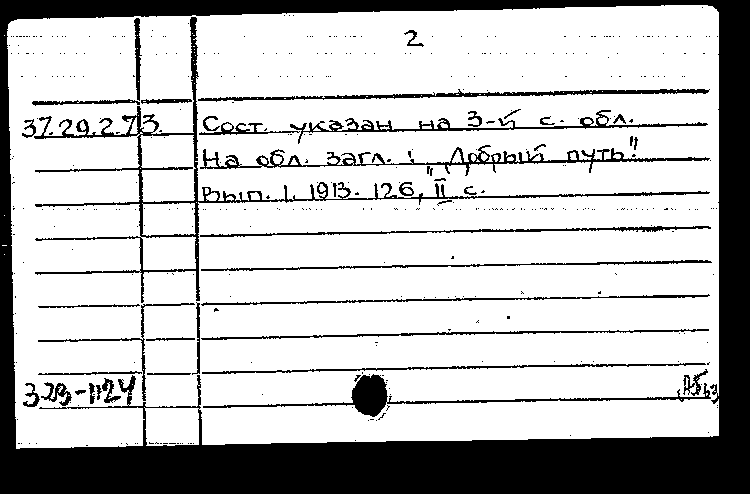 2
37.29.2.73. Сост. указан на 3-й с. обл.
На обл. загл.: „Добрый путь".
Вып. 1. 1913. 126, II с.
3.23-1124